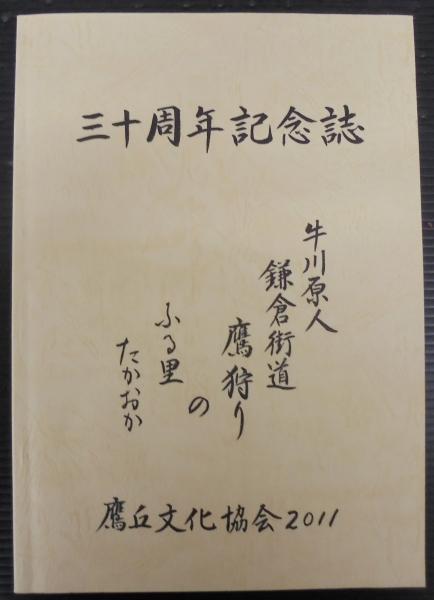 三十周年記念誌
牛川原人
鎌倉街道
鷹狩り
の
ふる里
たかおか
鷹丘文化協会2011